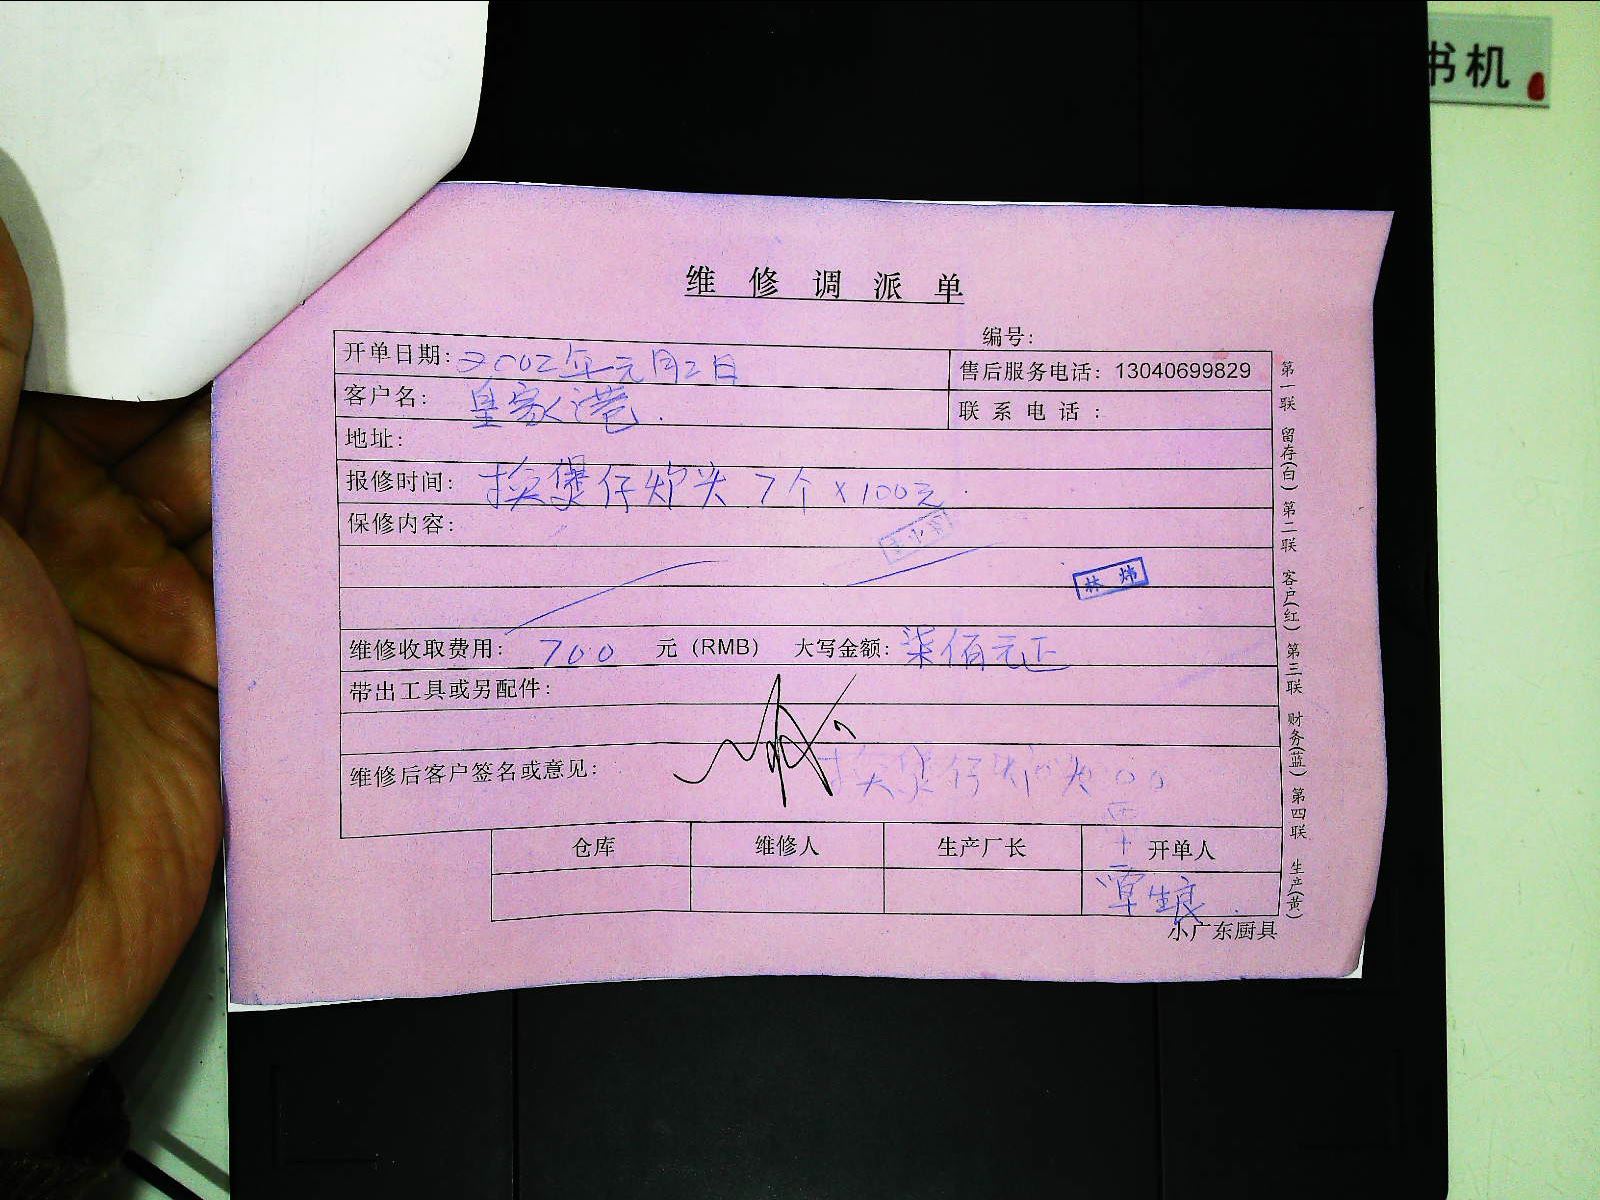 书机
维修调派单
编号：
开单日期：2002年元月2日
售后服务电话：13040699829
客户名：皇家港.
联系电话：
地址：
报修时间：换煲仔炉头 7个×100元.
保修内容：
林炜
维修收取费用：700 元（RMB） 大写金额：柒佰元正
带出工具或另配件：
维修后客户签名或意见：
换煲仔炉头
仓库 维修人 生产厂长 开单人
覃生良.
小广东厨具
第一联 留存(白) 第二联 客户(红) 第三联 财务(蓝) 第四联 生产(黄)